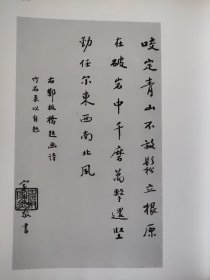 咬定青山不放鬆立根原
在破岩中千磨萬擊還堅
勁任尔東西南北風
右鄭板橋題画诗
竹石录以自勉
書